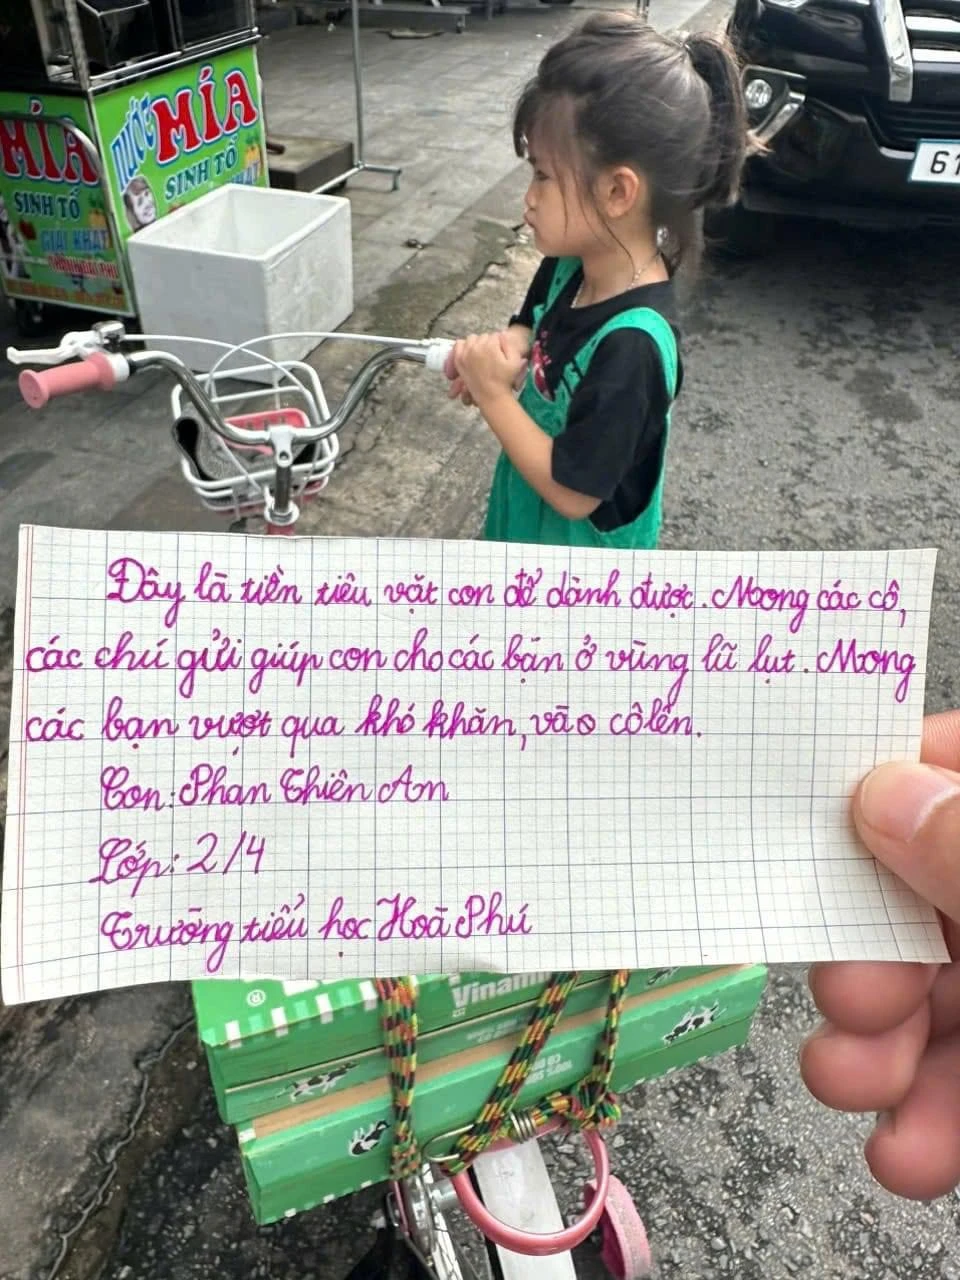 MÍA
SINH TỐ
GIẢI KHÁT
NƯỚC
MÍA
SINH TỐ
61
Đây là tiền tiêu vặt con để dành được. Mong các cô,
các chú gửi giúp con cho các bạn ở vùng lũ lụt. Mong
các bạn vượt qua khó khăn, vào cô lên.
Con: Phan Thiên An
Lớp: 2/4
Trường tiểu học Hoà Phú
®
Vinam